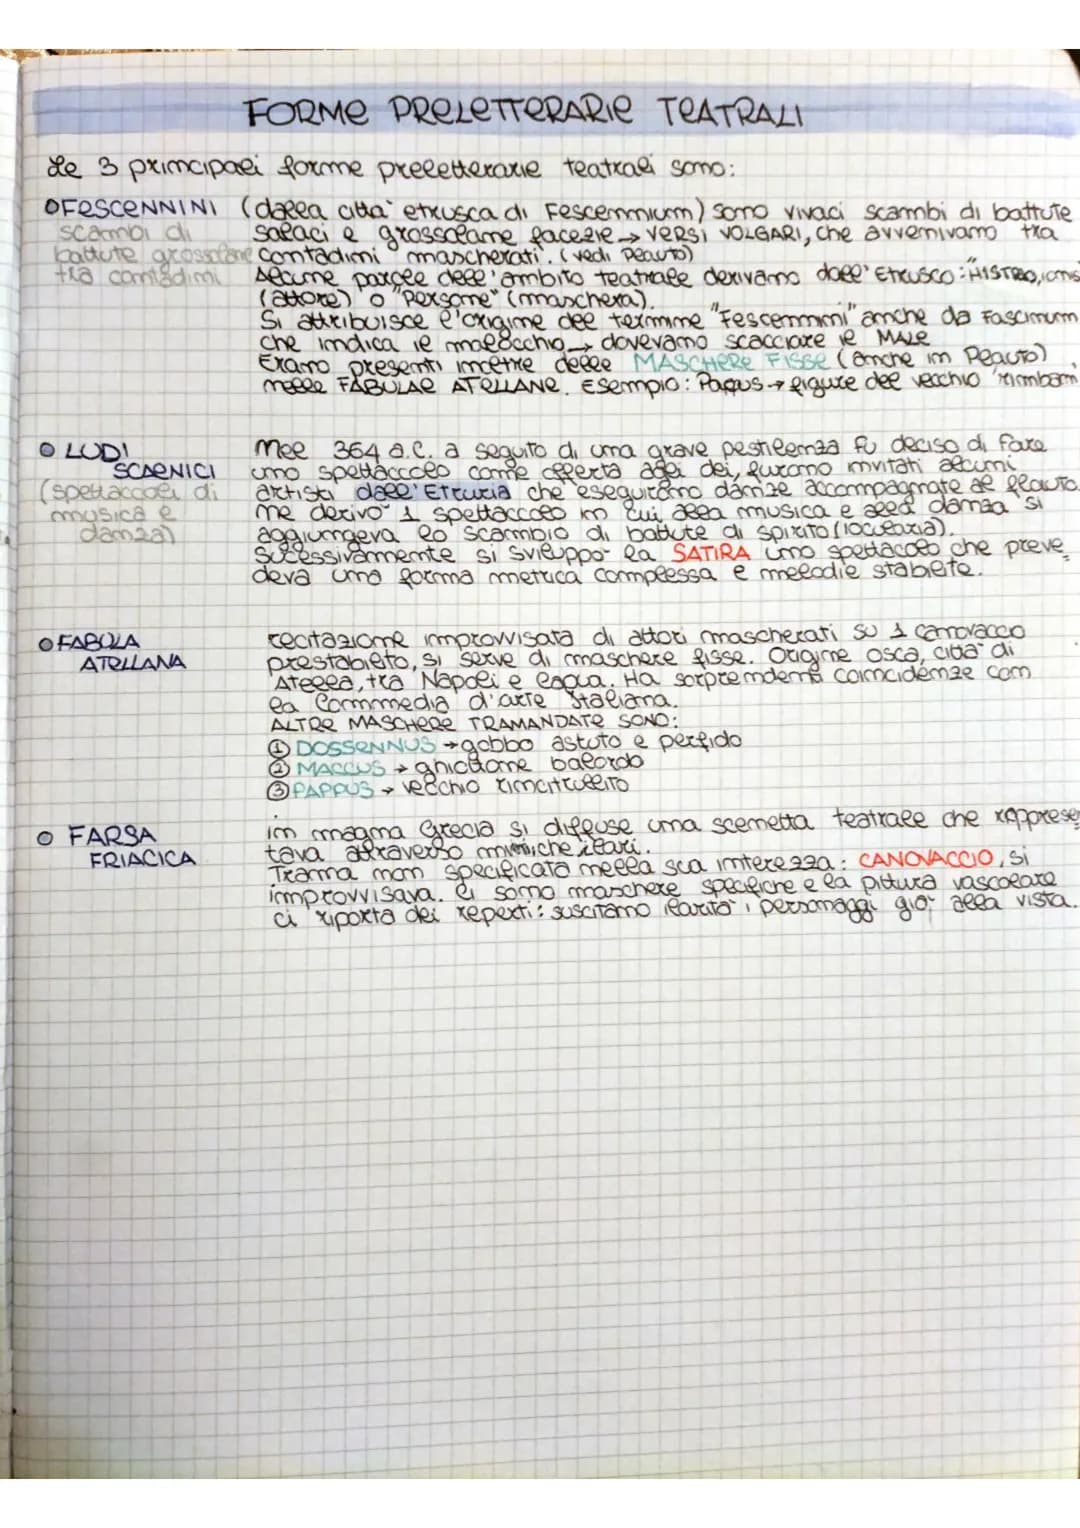 FORME PRELETTERARIE TEATRALI
Le 3 principali forme preletterarie teatrali sono:
FESCENNINI (dalla città etrusca di Fescennium) sono vivaci scambi di battute
scambi di salaci e grossolane facezie → VERSI VOLGARI, che avvenivano tra
battute grossolane contadini mascherati. (vedi Plauto)
tra contadini Alcune parole dell'ambito teatrale derivano dall'Etrusco: HISTRIO, ionis
(attore) o "Persone" (maschera).
Si attribuisce l'origine del termine "Fescennini" anche da Fascinum
che indica il malocchio → dovevano scacciare il MALE
Erano presenti inoltre delle MASCHERE FISSE (anche in Plauto)
nelle FABULAE ATELLANE. Esempio: Papus → figure del vecchio rimbam
LUDI Nel 364 a.C. a seguito di una grave pestilenza fu deciso di fare
SCAENICI uno spettaccolo come offerta agli dei, furono invitati alcuni
(spettaccoli di artisti dall'Etruria che eseguirono danze accompagnate al flauto.
musica e Ne derivò 1 spettaccolo in cui alla musica e alla danza si
danza) aggiungeva lo scambio di battute di spirito (iocularia).
Sucessivamente si sviluppò la SATIRA uno spettacolo che preve
deva una forma metrica complessa e melodie stabilite.
FABULA recitazione improvvisata di attori mascherati su 1 canovaccio
ATELLANA prestabilito, si serve di maschere fisse. Origine osca, città di
Atella, tra Napoli e Capua. Ha sorprendenti coincidenze con
la Commedia d'arte Italiana.
ALTRE MASCHERE TRAMANDATE SONO:
① DOSSENNUS → gobbo astuto e perfido
② MACCUS → ghiottone balordo
③ PAPPUS → vecchio rimcitrullito
FARSA in magna Grecia si diffuse una scenetta teatrale che rappresen
FRIACICA tava attraverso mimiche ilari.
Trama non specificata nella sua interezza: CANOVACCIO, si
improvvisava. Ci sono maschere specifiche e la pittura vascolare
ci riporta dei reperti: suscitano ilarità i personaggi già alla vista.